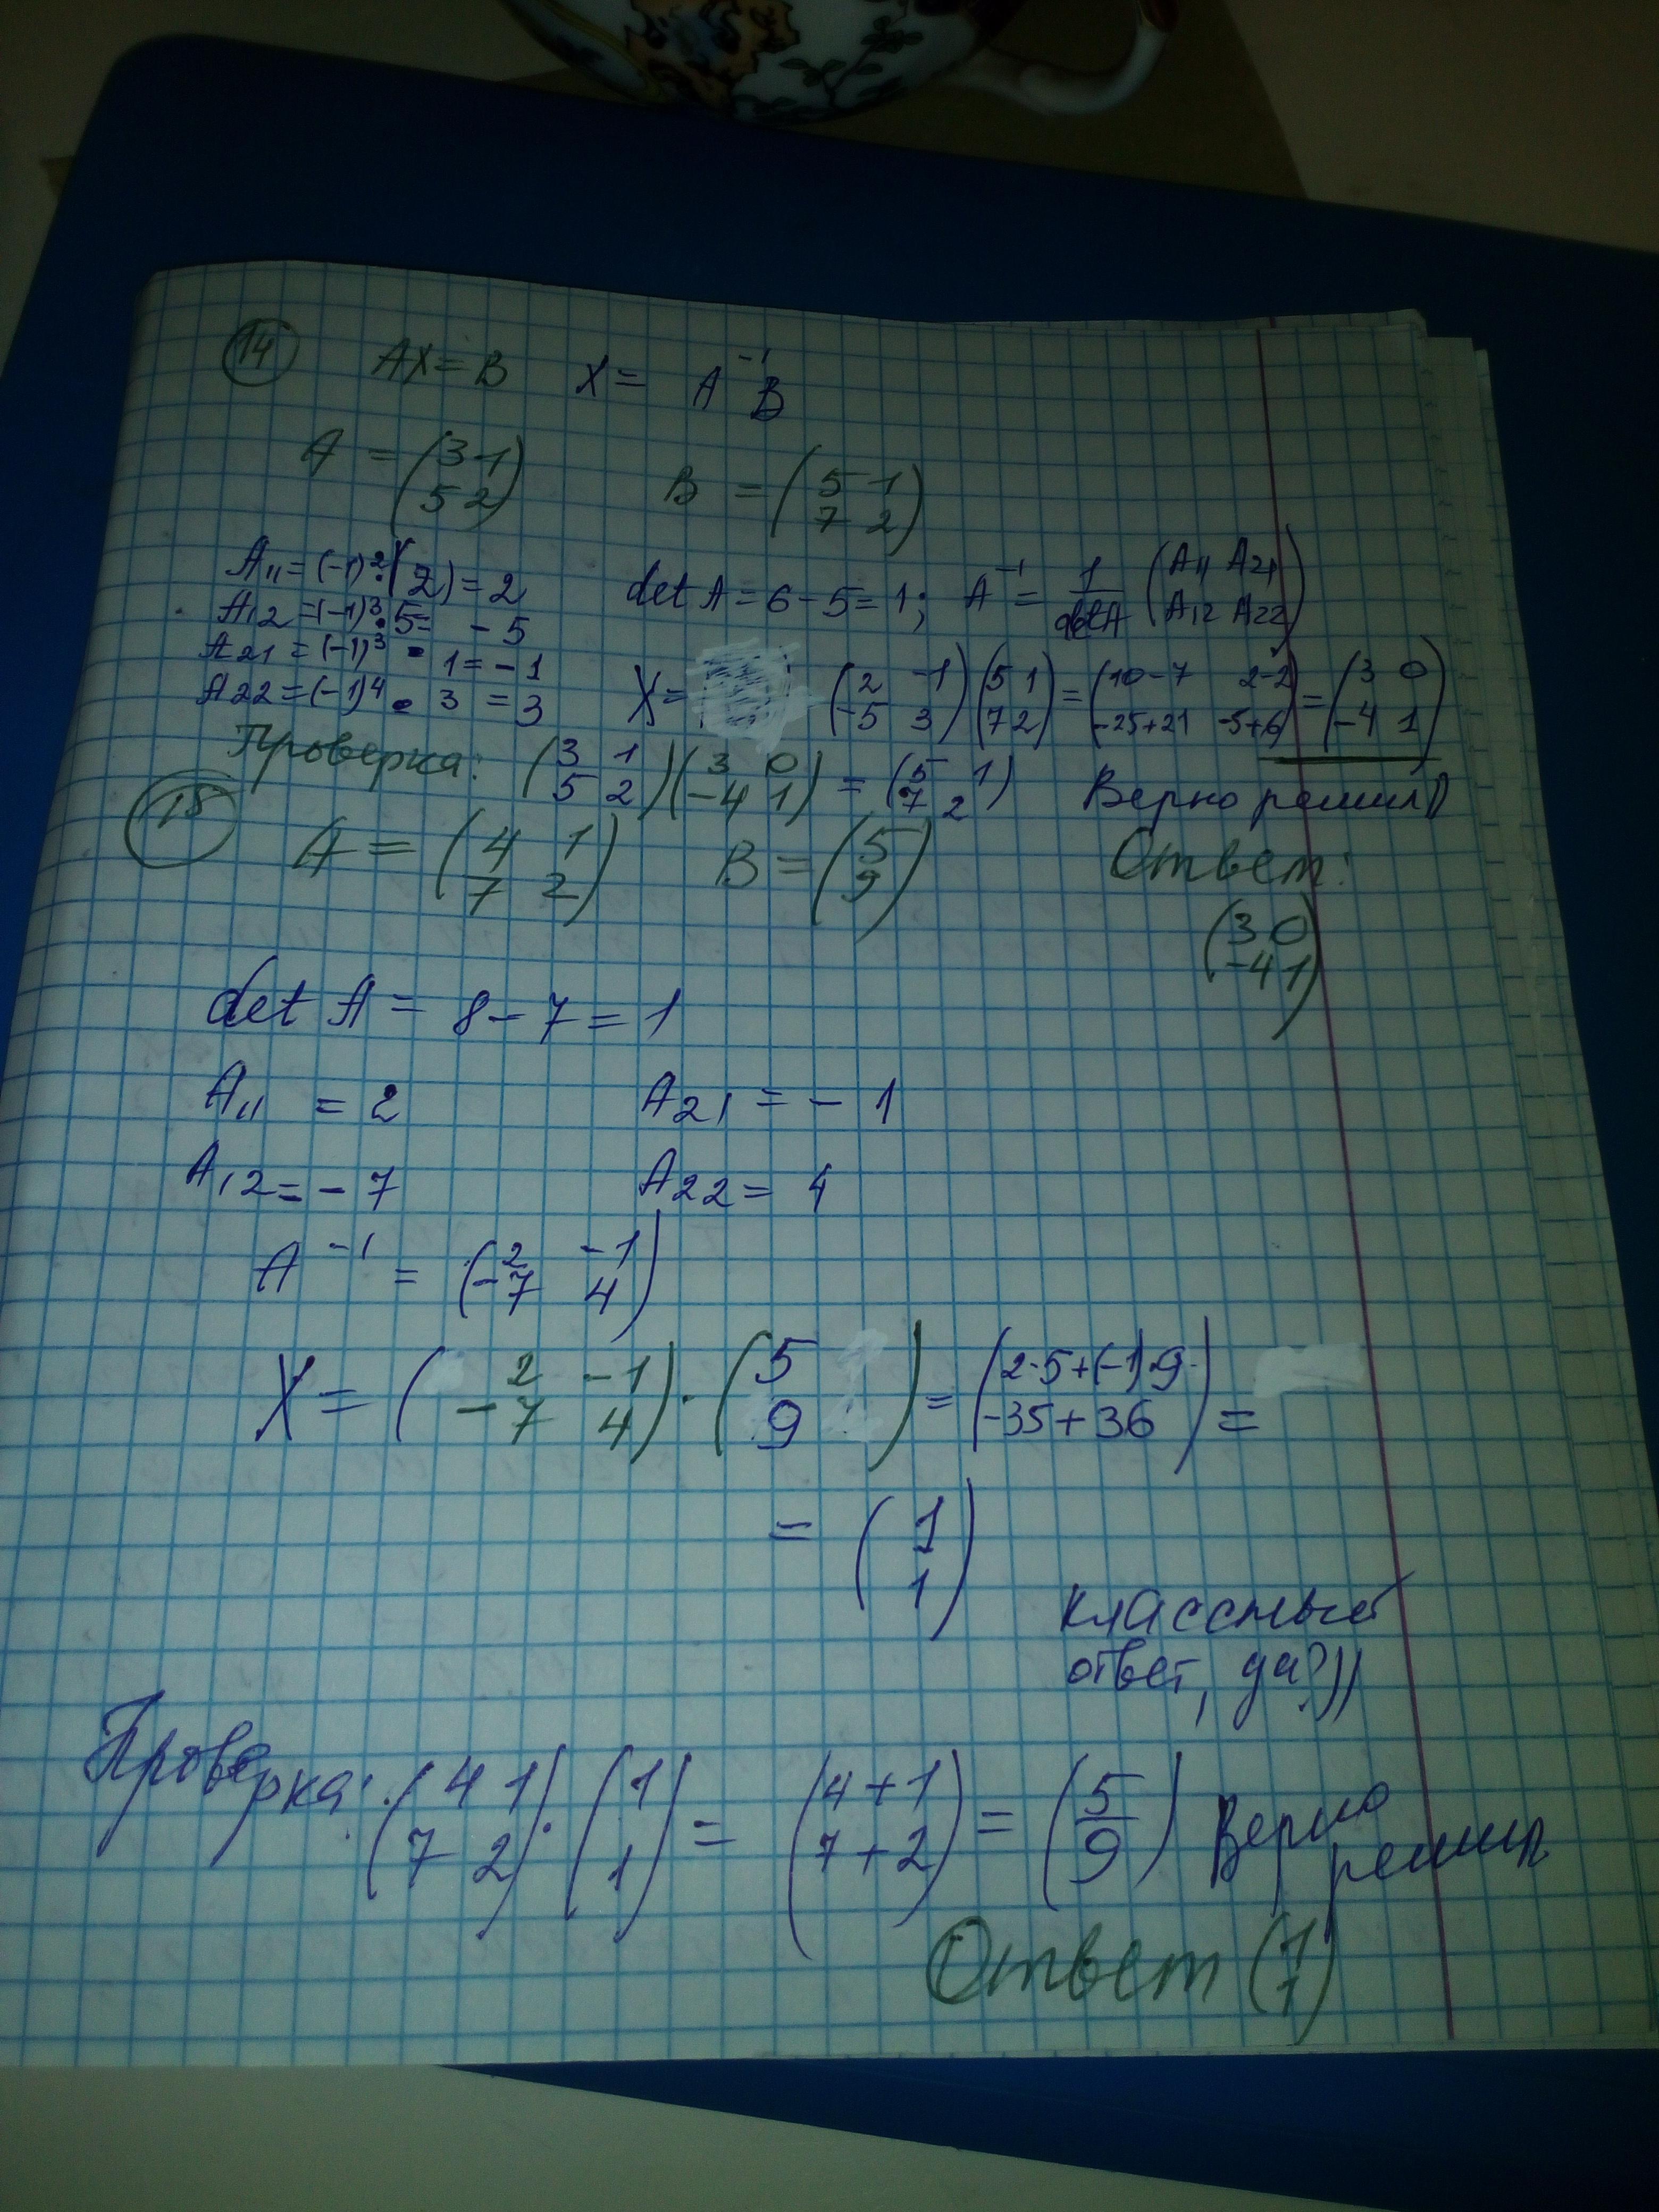 14 AX = B X = A⁻¹B
A = (3 1
5 2) B = (5 1
7 2)
A₁₁ = (-1)²·(2) = 2
A₁₂ = (-1)³·5 = -5
A₂₁ = (-1)³·1 = -1
A₂₂ = (-1)⁴·3 = 3
det A = 6 - 5 = 1; A⁻¹ = 1/det A (A₁₁ A₂₁
A₁₂ A₂₂)
X = (2 -1
-5 3) (5 1
7 2) = (10-7 2-2
-25+21 -5+6) = (3 0
-4 1)
Проверка: (3 1
5 2) (3 0
-4 1) = (5 1
7 2) Верно решил))
15 A = (4 1
7 2) B = (5
9)
Ответ:
(3 0
-4 1)
det A = 8 - 7 = 1
A₁₁ = 2 A₂₁ = - 1
A₁₂ = - 7 A₂₂ = 4
A⁻¹ = (2 -1
-7 4)
X = (2 -1
-7 4) · (5
9) = (2·5+(-1)·9
-35+36) =
= (1
1)
классный
ответ, да?))
Проверка: (4 1
7 2) · (1
1) = (4+1
7+2) = (5
9) Верно
решил
Ответ (1
1)